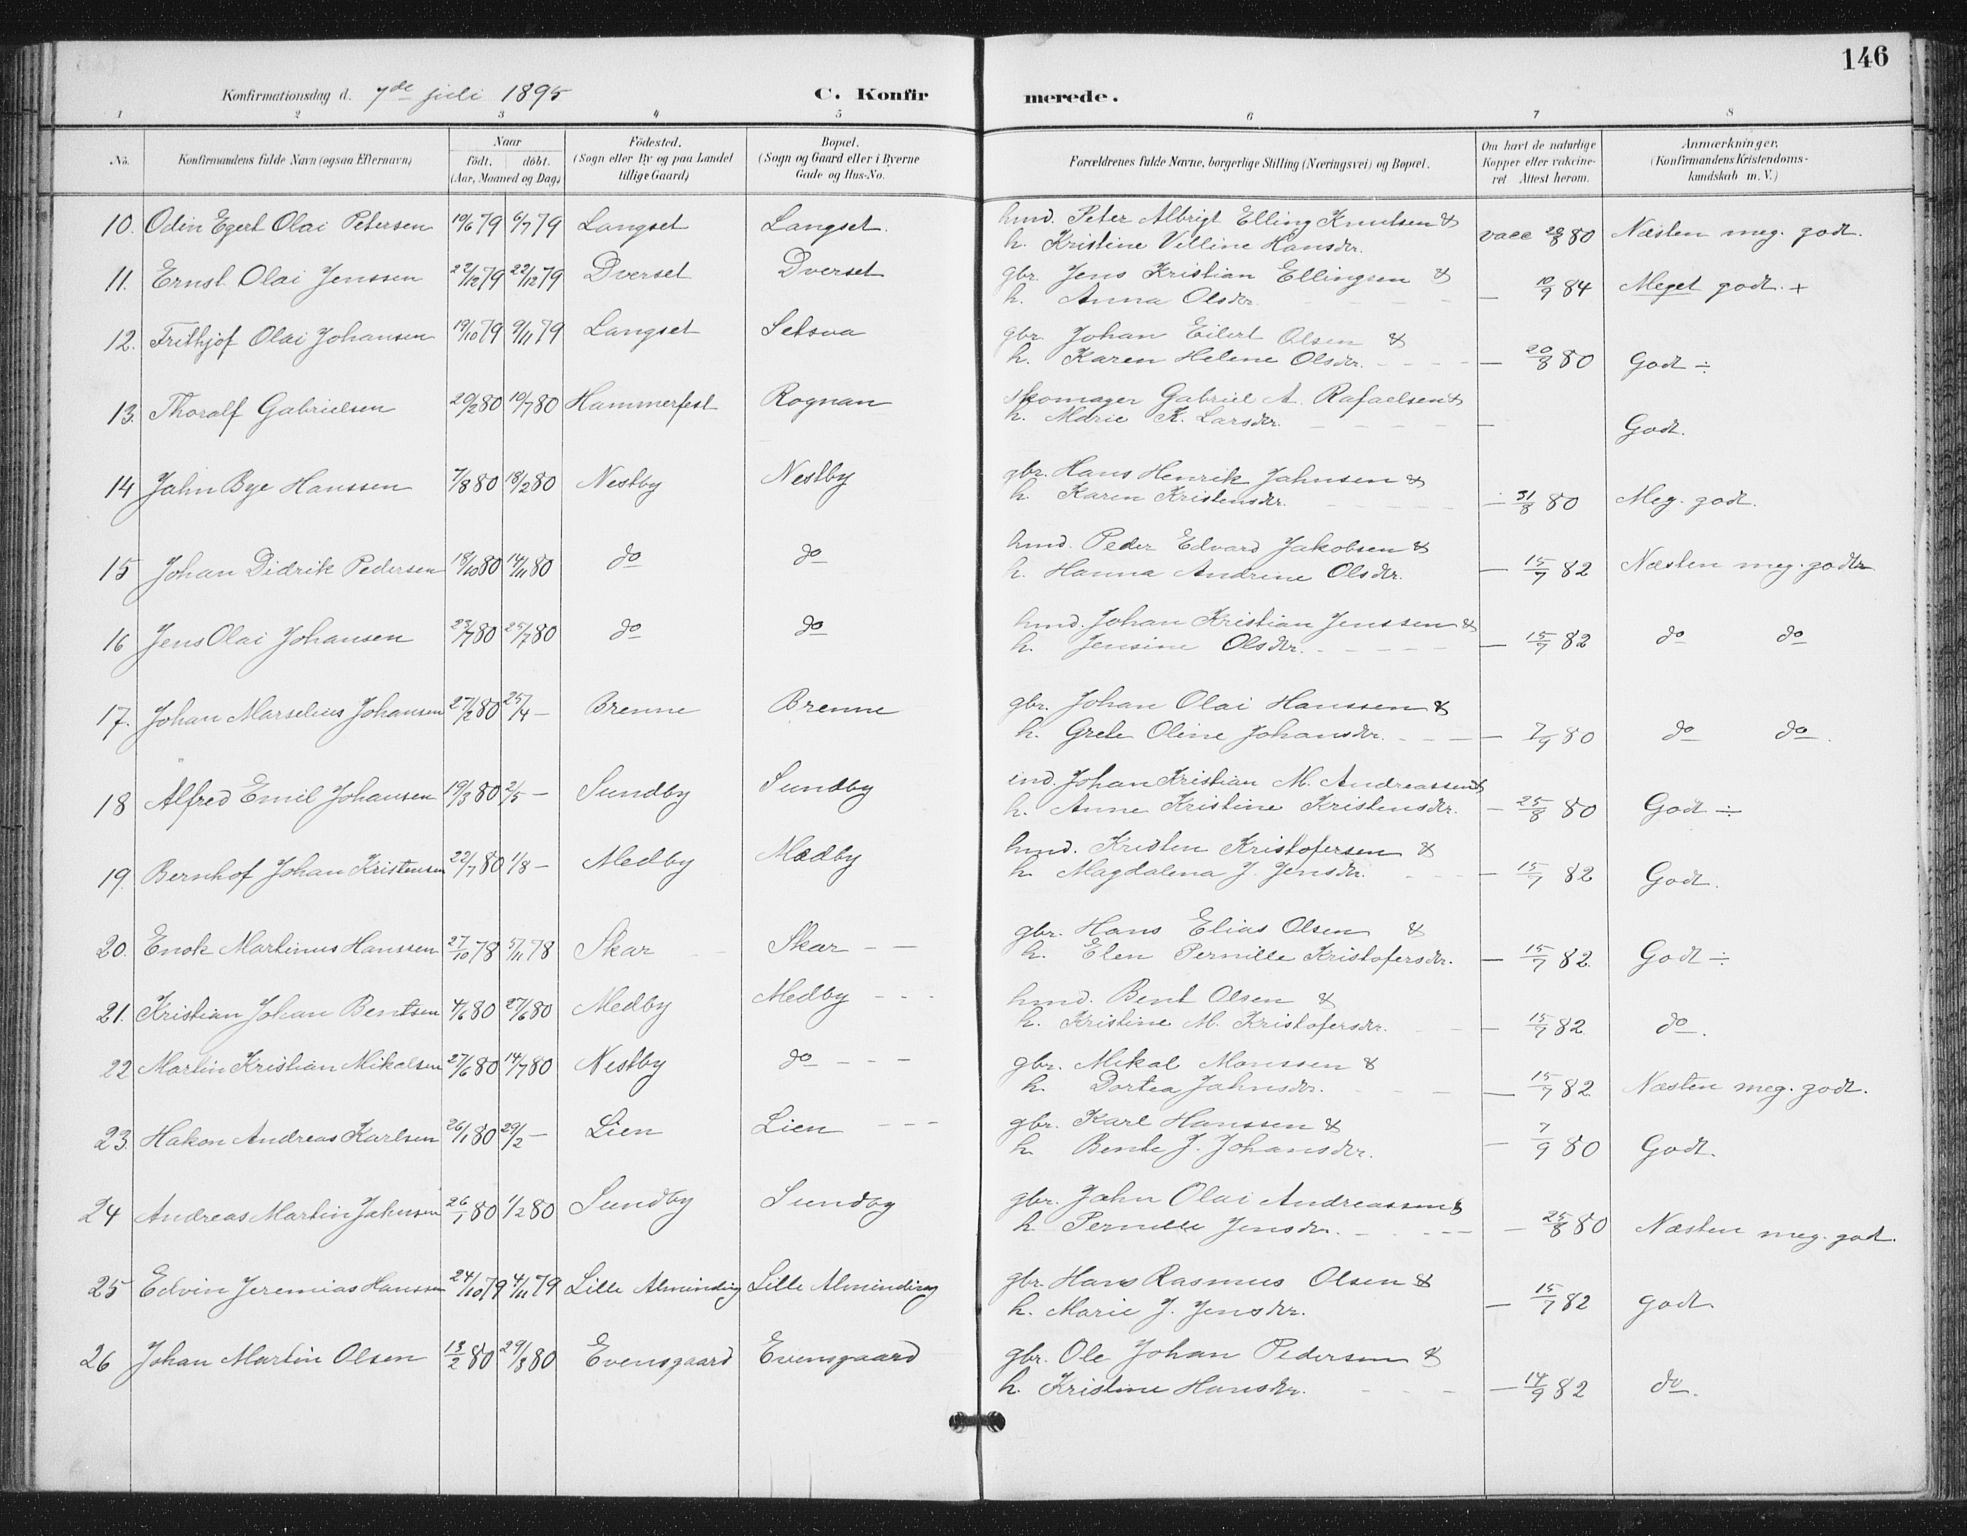 146
Konfirmationsdag d. 7de juli 1895 C. Konfirmerede.
1 2 3 4 5 6 7 8
No. Konfirmandens fulde Navn (ogsaa Efternavn) Naar født. døbt. (Aar, Maaned og Dag) Fødested. (Sogn eller By og paa Landet tillige Gaard) Bopæl. (Sogn og Gaard eller i Byerne Gade og Hus-No. Forældrenes fulde Navne, borgerlige Stilling (Næringsvei) og Bopæl. Om havt de naturlige Kopper eller vakcineret Attest herom. Anmærkninger. (Konfirmandens Kristendomskundskab m. V.)
10. Odin Egert Olai Petersen 10/6 79 6/7 79 Langset Langset. hmd. Peter Albrigt Elling Knutsen &
h. Kristine Velline Hansdtr. vacc 20/8 80 Næsten meg. godt.
11. Ernst Olai Jenssen 22/12 79 22/12 79 Dverset Dverset gbr. Jens Kristian Ellingsen &
h. Anna Olsdtr. — 10/9 84 Meget godt. +
12. Frithjof Olai Johansen 19/10 79 9/11 79 Langset Setsva gbr. Johan Eilert Olsen &
h. Karen Helene Olsdtr. — 20/8 80 Godt ÷
13. Thoralf Gabrielsen 20/2 80 10/7 80 Hammerfest Rognan Skomager Gabriel A. Rafaelsen &
h. Marie K. Larsdtr. — Godt.
14 Jahn Bye Hanssen 7/8 80 18/2 80 Nestby Nestby gbr. Hans Henrik Jahnsen &
h. Karen Kristensdtr. — 31/8 80 Meg. godt.
15 Johan Didrik Pedersen 18/10 80 14/11 80 do do hmd. Peder Edvard Jakobsen &
h. Hanna Andrine Olsdtr. — 15/7 82 Næsten meg. godt
16 Jens Olai Johansen 23/7 80 25/7 80 do do hmd. Johan Kristian Jenssen &
h. Jensine Olsdtr. — 15/7 82 do do
17. Johan Marselius Johansen 27/2 80 25/4 — Brenne Brenne gbr. Johan Olai Hanssen &
h. Grete Oline Johansdtr. — 7/9 80 do do.
18 Alfred Emil Johansen 19/3 80 2/5 — Sundby Sundby ind. Johan Kristian M. Andreassen &
h. Anne Kristine Kristensdtr. — 25/8 80 Godt ÷
19. Bernhof Johan Kristensen 22/7 80 1/8 — Medby Medby hmd. Kristen Kristofersen &
h. Magdalena J. Jensdtr. — 15/7 82 Godt.
20. Enok Martinus Hanssen 27/10 78 5/11 78 Skar Skar — — gbr. Hans Elias Olsen &
h. Elen Pernille Kristofersdtr. — 15/7 82. Godt ÷
21. Kristian Johan Bentsen 4/6 80 27/6 80 Medby Medby - - - hmd. Bent Olsen &
h. Kristine M. Kristofersdtr. — 15/7 82. do.
22 Martin Kristian Mikalsen 27/6 80 14/7 80 Nestby do - - - gbr. Mikal Monssen &
h. Dortea Jahnsdtr. — 15/7 82. Næsten meg. godt.
23. Hakon Andreas Karlsen 26/1 80 29/2 — Lien Lien - - - gbr. Karl Hanssen &
h. Bente J. Johansdtr. — 7/9 80 Godt.
24 Andreas Martin Jahnsen 26/1 80 1/2 80 Sundby Sundby gbr. Jahn Olai Andreassen &
h. Pernille Jensdtr. — 25/8 80 Næsten meg. god.
25 Edvin Jeremias Hanssen 24/10 79 4/11 79 Lille Alminding Lille Alminding gbr. Hans Rasmus Olsen &
h. Marie J. Jensdtr. — 15/7 82 godt.
26 Johan Martin Olsen 13/2 80 29/3 80 Evensgaard Evensgaard gbr. Ole Johan Pedersen &
h. Kristine Hansdtr. — 14/9 82 do.